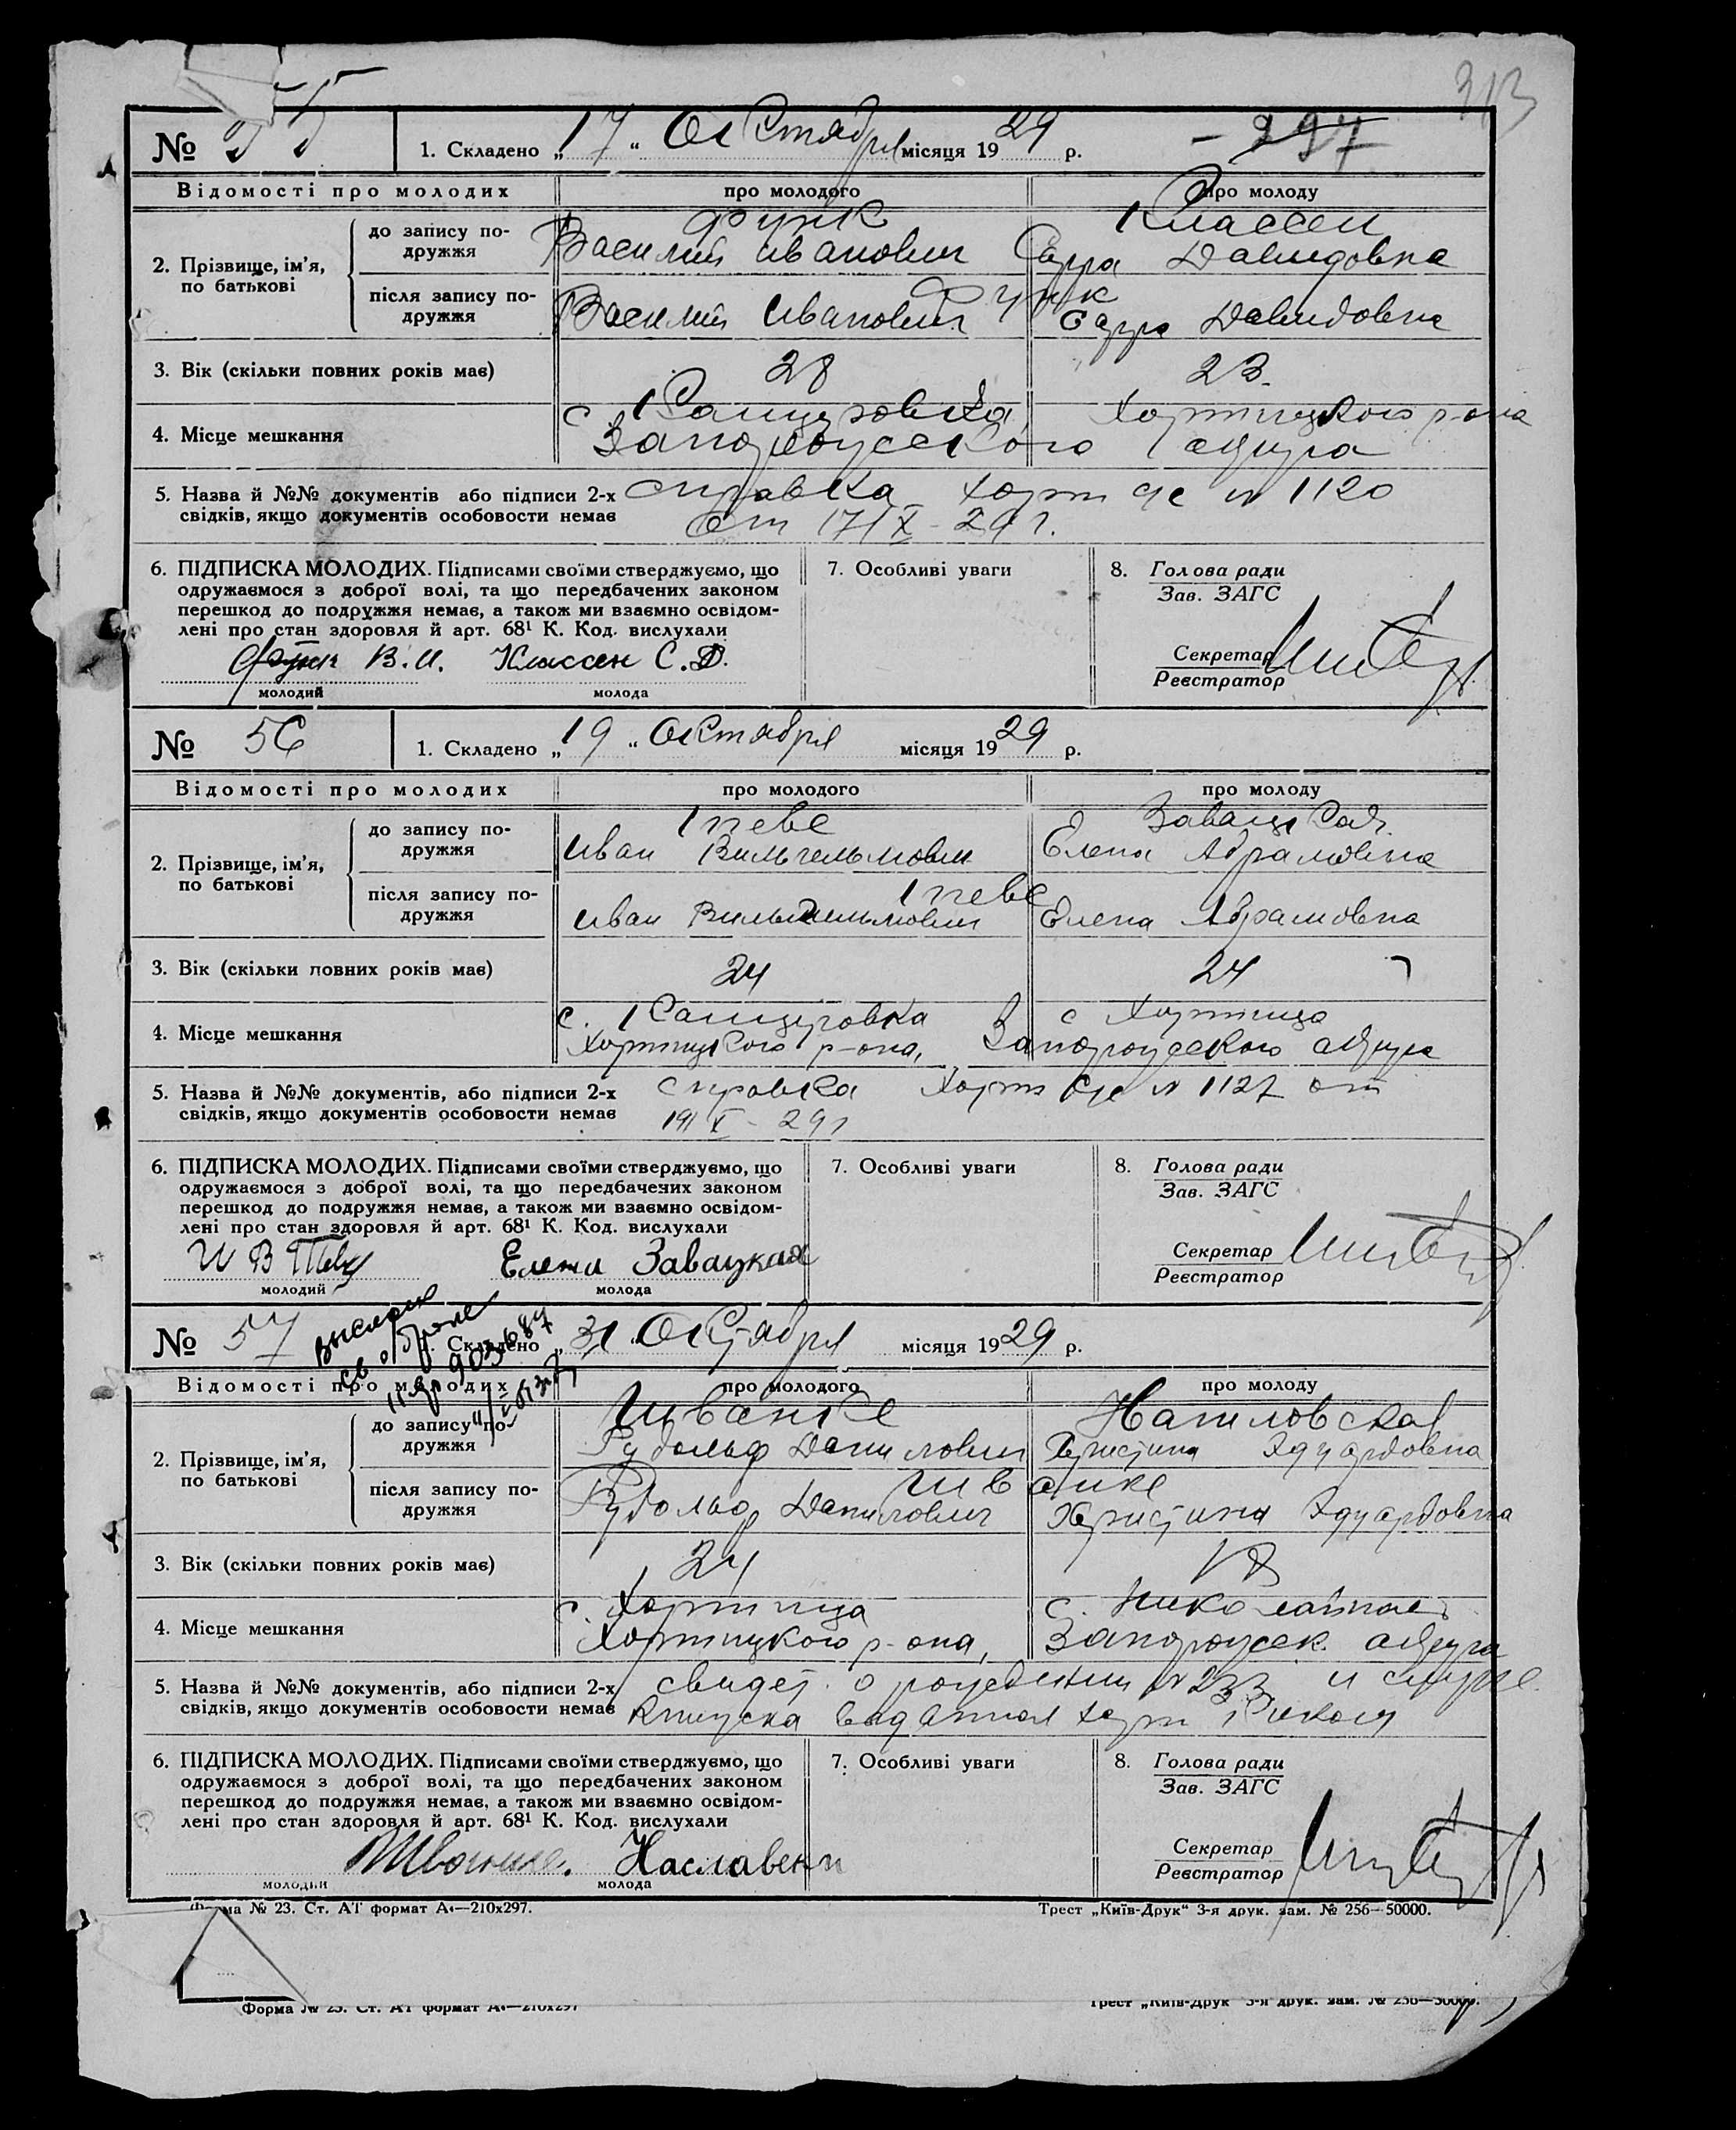 55
313
№ 55 1. Складено „17“ Октября місяця 1929 р. – 297
Відомості про молодих про молодого про молоду
2. Прізвище, ім’я, по батькові
до запису подружжя
Функ Классен
Василий Иванович Сарра Давидовна
після запису подружжя
Функ
Василий Иванович Сарра Давидовна
3. Вік (скільки повних років має) 28 23.
4. Місце мешкання
с. Канцеровка Хортицкого р-она
Запорожского округа
5. Назва й №№ документів або підписи 2-х справка Хорт с/с № 1120
свідків, якщо документів особовости немає от 17/X – 29 г.
6. ПІДПИСКА МОЛОДИХ. Підписами своїми стверджуємо, що
одружаємося з доброї волі, та що передбачених законом
перешкод до подружжя немає, а також ми взаємно освідом-
лені про стан здоровля й арт. 68¹ К. Код. вислухали
Функ В.И. Классен С.Д.
молодий молода
7. Особливі уваги
8. Голова ради
Зав. ЗАГС
Секретар
Реєстратор
№ 56 1. Складено „19“ Октября місяця 1929 р.
Відомості про молодих про молодого про молоду
2. Прізвище, ім’я, по батькові
до запису подружжя
Завацкая.
Иван Вильгельмович Елена Абрамовна
після запису подружжя
Иван Вильгельмович Елена Абрамовна
3. Вік (скільки повних років має) 24 24
4. Місце мешкання
с. Канцеровка с Хортица
Хортицкого р-она, Запорожского округа
5. Назва й №№ документів, або підписи 2-х справка Хорт с/с № 1127 от
свідків, якщо документів особовости немає 19/X – 29 г
6. ПІДПИСКА МОЛОДИХ. Підписами своїми стверджуємо, що
одружаємося з доброї волі, та що передбачених законом
перешкод до подружжя немає, а також ми взаємно освідом-
лені про стан здоровля й арт. 68¹ К. Код. вислухали
И В Елена Завацкая
молодий молода
7. Особливі уваги
8. Голова ради
Зав. ЗАГС
Секретар
Реєстратор
№ 57 1. Складено „31“ Октября місяця 1929 р.
св о браке
Відомості про молодих про молодого про молоду
2. Прізвище, ім’я, по батькові
до запису подружжя
Шванке
Рудольф Данилович Христина Эдуардовна
після запису подружжя
Шванке
Рудольф Данилович Христина Эдуардовна
3. Вік (скільки повних років має) 24 18
4. Місце мешкання
с. Хортица с. Николайполь
Хортицкого р-она, Запорожск. округа
5. Назва й №№ документів, або підписи 2-х свидет. о рождении № 233 и
свідків, якщо документів особовости немає выданная Хорт
6. ПІДПИСКА МОЛОДИХ. Підписами своїми стверджуємо, що
одружаємося з доброї волі, та що передбачених законом
перешкод до подружжя немає, а також ми взаємно освідом-
лені про стан здоровля й арт. 68¹ К. Код. вислухали
молодий молода
7. Особливі уваги
8. Голова ради
Зав. ЗАГС
Секретар
Реєстратор
Форма № 23. Ст. АТ формат А4—210х297. Трест „Київ-Друк“ 3-я друк. зам. № 256—50000.
Форма № 23. Ст. АТ формат А4—210х297 Трест „Київ-Друк“ 3-я друк. зам. № 256—50000.